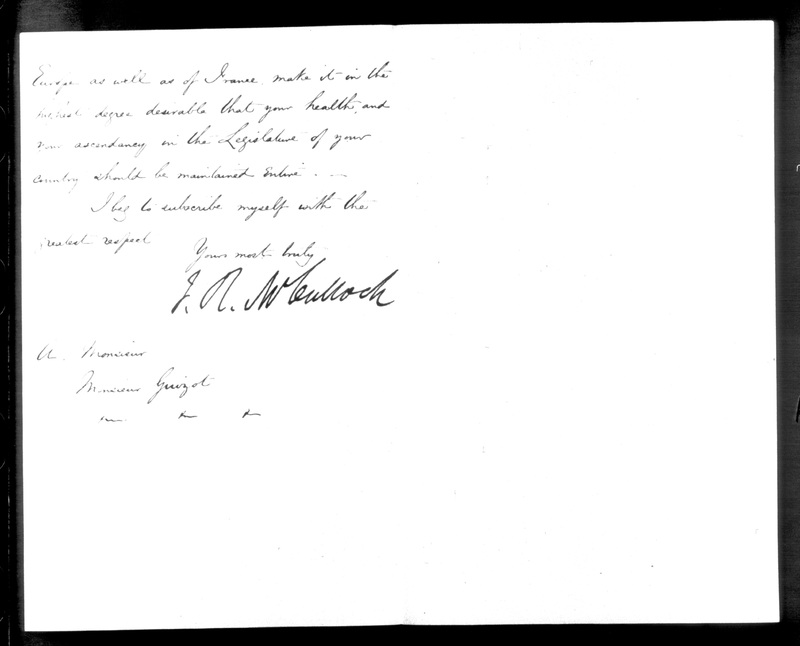 Europe as well as of France, make it in the
highest degree desirable that your health, and
your ascendancy in the Legislature of your
country should be maintained entire. —
I beg to subscribe myself with the
greatest respect
Yours most truly
J. R. McCulloch
A. Monsieur
Monsieur Guizot